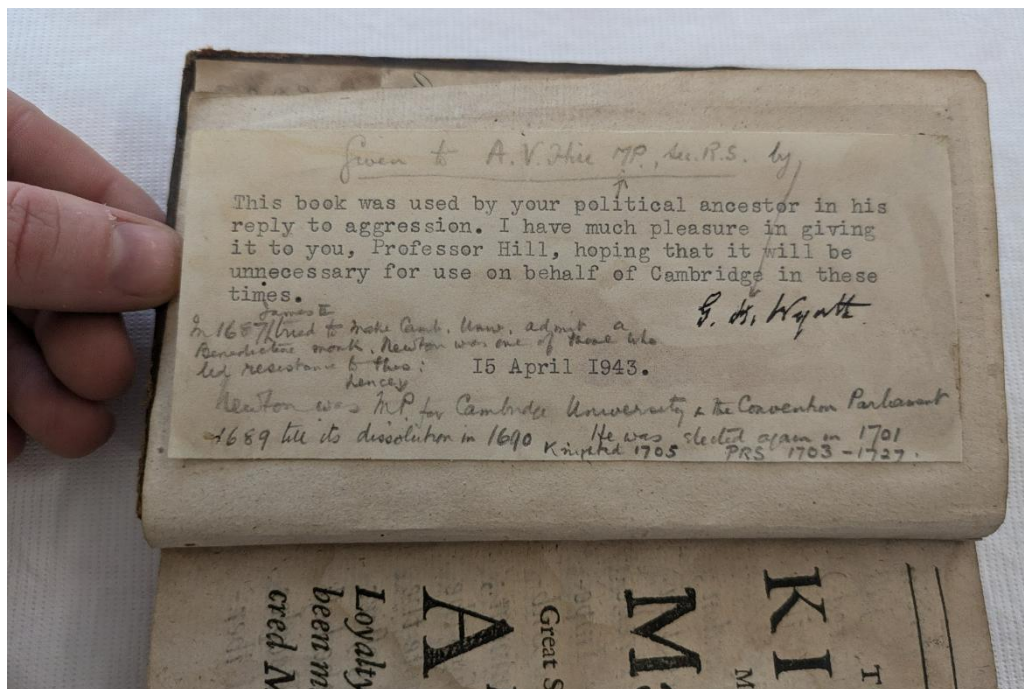 Given to A.V. Hill MP., Sec. R.S. by
This book was used by your political ancestor in his
reply to aggression. I have much pleasure in giving
it to you, Professor Hill, hoping that it will be
unnecessary for use on behalf of Cambridge in these
times.
G. H. Wyatt
James II
In 1687 tried to make Camb. Univ. admit a
Benedictine monk. Newton was one of those who
led resistance to this:
hence
15 April 1943.
Newton was M.P. for Cambridge University to the Convention Parliament
1689 till its dissolution in 1690 He was elected again in 1701
Knighted 1705 PRS 1703-1727.
T
KI
M
MO
Great S
A
Loyalty
been m
cred M